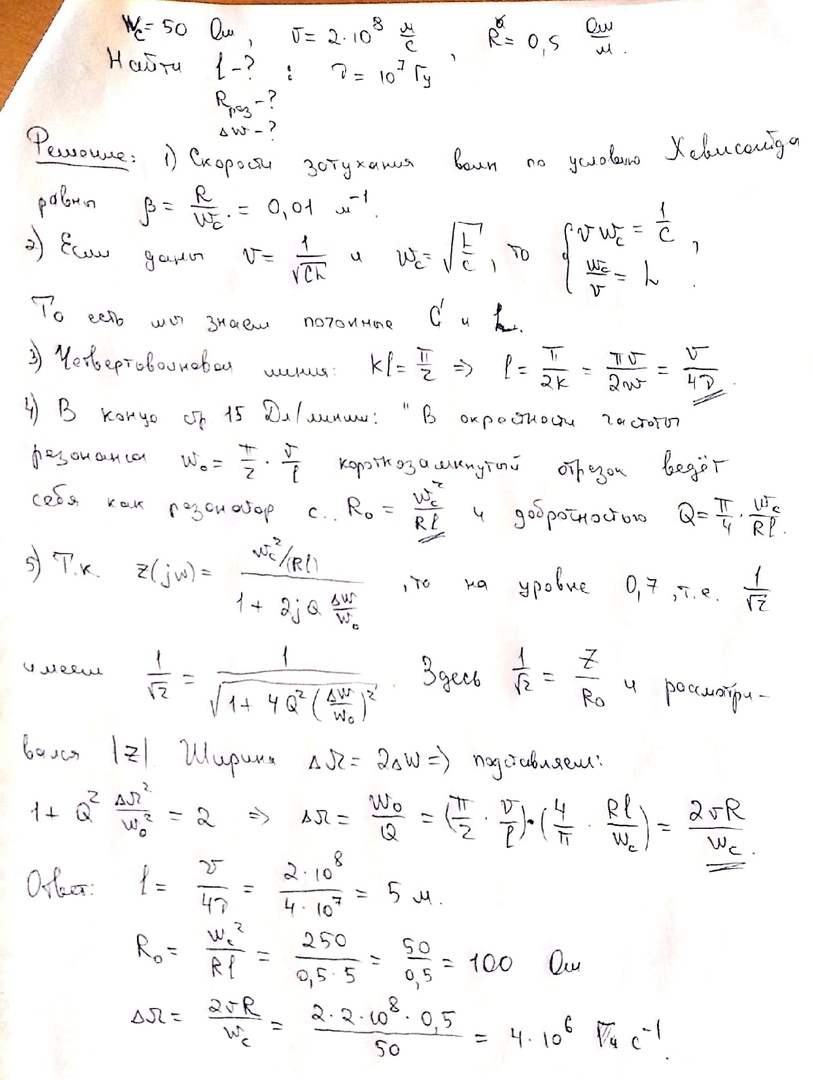 Wc = 50 Ом, v = 2·10⁸ м/с, R = 0,5 Ом/м.
Найти l-? : ν = 10⁷ Гц
Rрез-?
Δw-?
Решение: 1) Скорости затухания волн по условию Хевисайда
равны β = R/Wc. = 0,01 м⁻¹.
2) Если даны v = 1/√(CL) и Wc = √(L/C), то { v Wc = 1/C , Wc/v = L .
То есть мы знаем погонные C и L.
3) Четвертьволновая линия: kl = π/2 => l = π/2k = πv/2w = v/4ν.
4) В конце стр 15 Дл/линии: "В окрестности частоты
резонанса w₀ = π/2 · v/l короткозамкнутый отрезок ведёт
себя как резонатор с.. R₀ = Wc²/Rl и добротностью Q = π/4 · Wc/Rl.
5) Т.к. Z(jw) = (Wc²/(Rl))/(1 + 2jQ Δw/w₀) , то на уровне 0,7, т.е. 1/√2
имеем 1/√2 = 1/√(1 + 4Q²(Δw/w₀)²). Здесь 1/√2 = Z/R₀ и рассматри-
вался |Z|. Ширина ΔΩ = 2Δw => подставляем:
1 + Q² ΔΩ²/w₀² = 2 => ΔΩ = w₀/Q = (π/2 · v/l)·(4/π · Rl/Wc) = 2vR/Wc.
Ответ: l = v/4ν = 2·10⁸/4·10⁷ = 5 м.
R₀ = Wc²/Rl = 250/0,5·5 = 50/0,5 = 100 Ом
ΔΩ = 2vR/Wc = 2·2·10⁸·0,5/50 = 4·10⁶ с⁻¹.